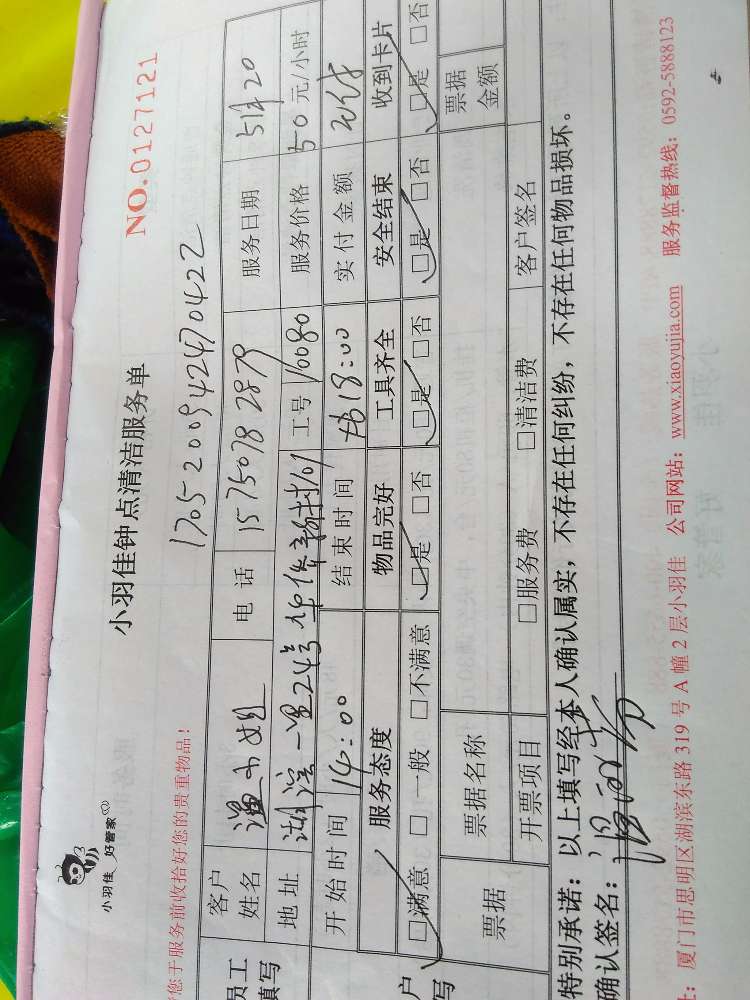 小羽佳 好管家
小羽佳钟点清洁服务单
NO.0127121
您于服务前收拾好您的贵重物品!
1705200942470422
员工
填写
客户
姓名
温小姐
电话
15750782879
服务日期
5月20
地址
湖滨一里24号
101
工号
10080
服务价格
50元/小时
开始时间
14:00
结束时间
18:00
实付金额
服务态度
物品完好
工具齐全
安全结束
收到卡片
□满意 □一般 □不满意
□是 □否
□是 □否
□是 □否
□是 □否
户
写
票据
票据名称
票据
金额
开票项目
□服务费
□清洁费
客户签名
特别承诺:以上填写经本人确认属实,不存在任何纠纷,不存在任何物品损坏。
确认签名:
址:厦门市思明区湖滨东路 319 号 A 幢 2 层小羽佳 公司网站:www.xiaoyujia.com 服务监督热线:0592-5888123